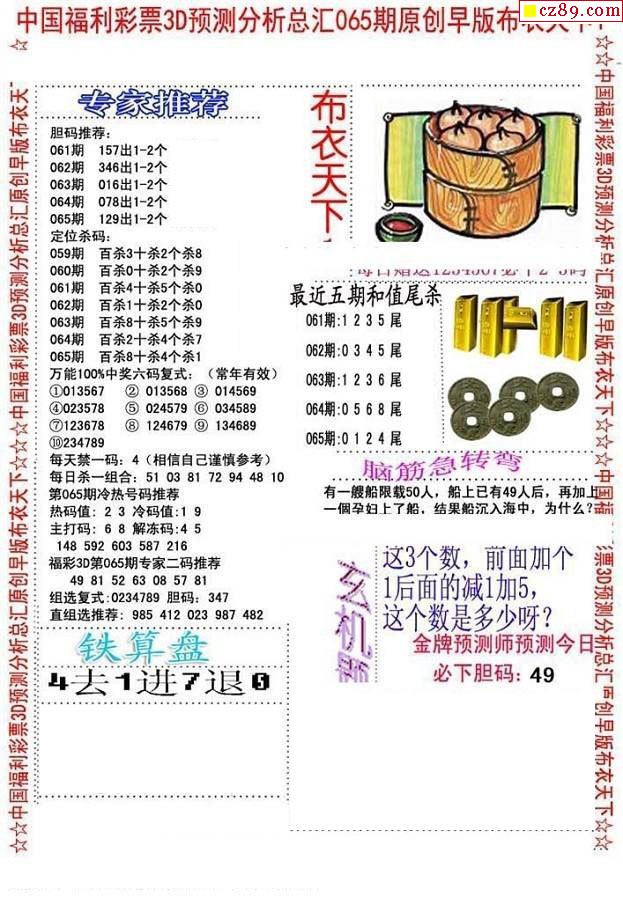 cz89.com
中国福利彩票3D预测分析总汇065期原创早版布衣天下
专家推荐
胆码推荐:
061期 157出1-2个
062期 346出1-2个
063期 016出1-2个
064期 078出1-2个
065期 129出1-2个
定位杀码:
059期 百杀3十杀2个杀8
060期 百杀0十杀2个杀9
061期 百杀4十杀5个杀0
062期 百杀1十杀2个杀0
063期 百杀8十杀5个杀9
064期 百杀2十杀4个杀7
065期 百杀8十杀4个杀1
万能100%中奖六码复式: (常年有效)
①013567 ② 013568 ③ 014569
④023578 ⑤ 024579 ⑥ 034589
⑦123678 ⑧ 124679 ⑨ 134689
⑩234789
每天禁一码: 4 (相信自己谨慎参考)
每日杀一组合: 51 03 81 72 94 48 10
第065期冷热号码推荐
热码值: 2 3 冷码值:1 9
主打码: 6 8 解冻码:4 5
148 592 603 587 216
福彩3D第065期专家二码推荐
49 81 52 63 08 57 81
组选复式:0234789 胆码: 347
直组选推荐: 985 412 023 987 482
铁算盘
4去1进7退0
布衣天下
每日赠送1234567必下2-3码
最近五期和值尾杀
061期:1 2 3 5 尾
062期:0 3 4 5 尾
063期:1 2 3 6 尾
064期:0 5 6 8 尾
065期:0 1 2 4 尾
脑筋急转弯
有一艘船限载50人,船上已有49人后,再加上
一個孕妇上了船,结果船沉入海中,为什么?
玄机
这3个数,前面加个
1后面的减1加5,
这个数是多少呀?
金牌预测师预测今日
必下胆码: 49
☆☆中国福利彩票3D预测分析总汇原创早版布衣天下☆☆☆中国福利彩票3D预测分析总汇原创早版布衣天
☆☆中国福利彩票3D预测分析总汇原创早版布衣天下☆☆☆中国福
票3D预测分析总汇原创早版布衣天下☆☆